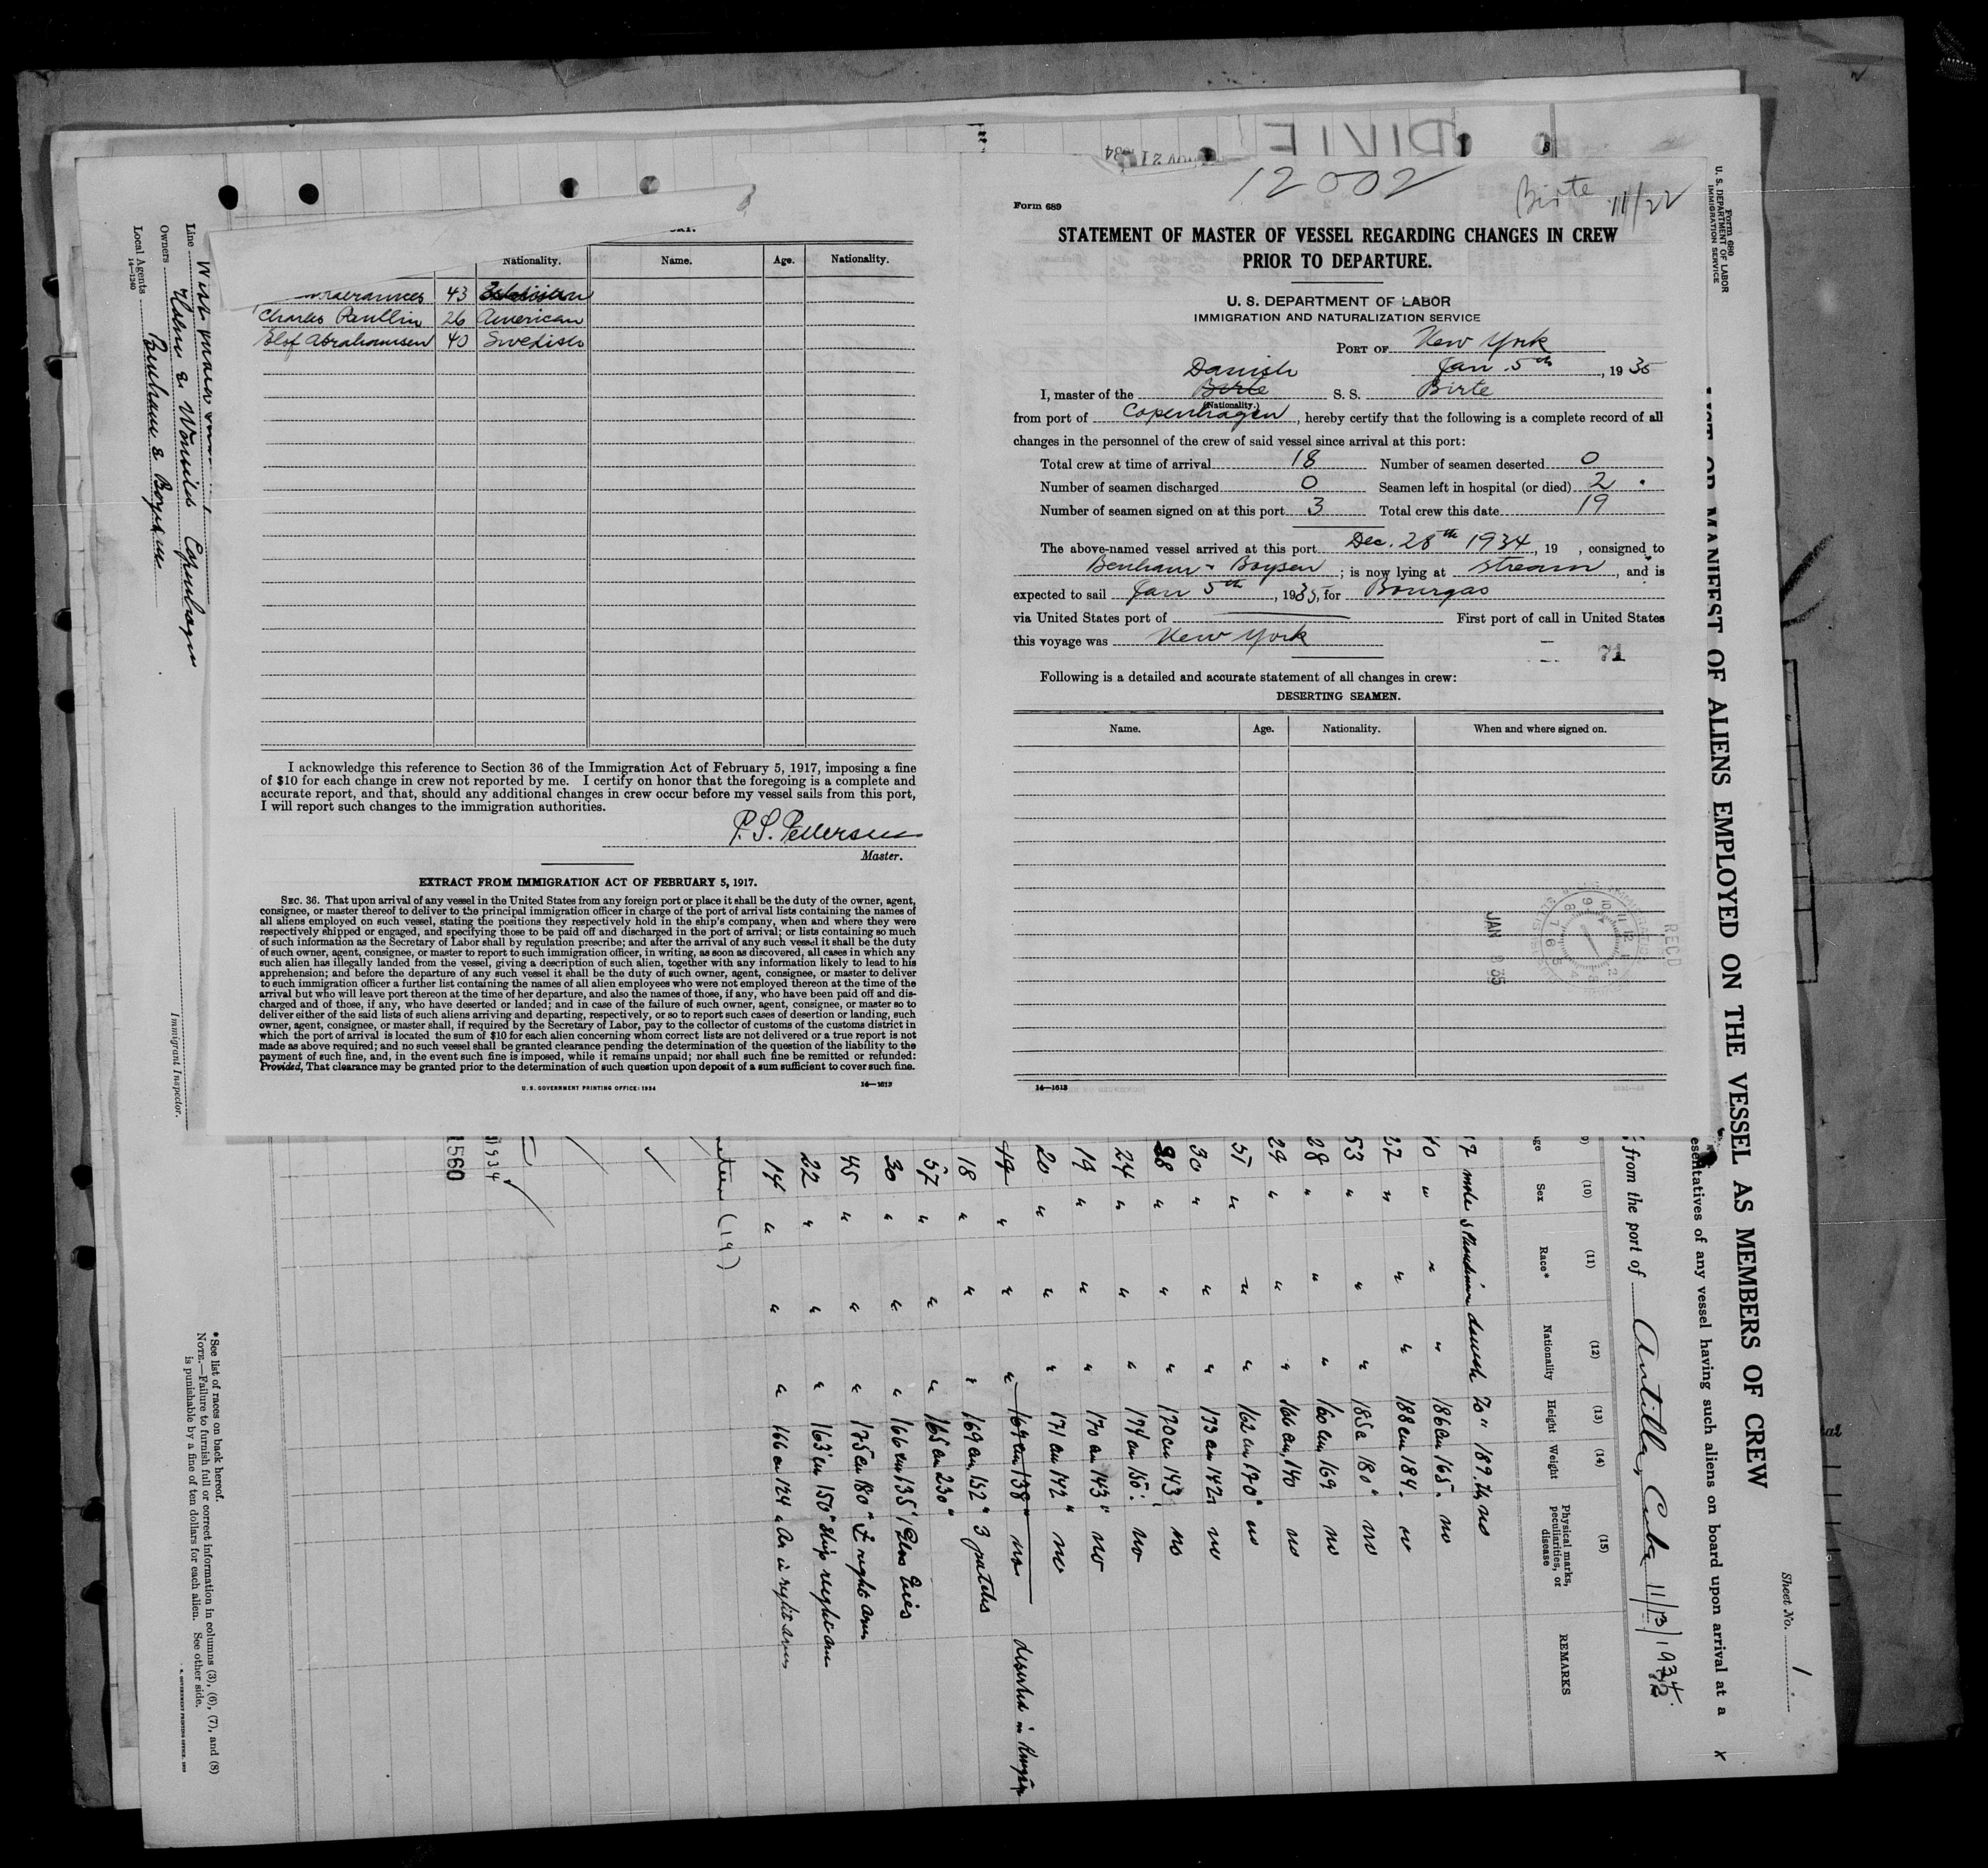 12002
Birte 11/22
Form 689
STATEMENT OF MASTER OF VESSEL REGARDING CHANGES IN CREW
PRIOR TO DEPARTURE.
U. S. DEPARTMENT OF LABOR
IMMIGRATION AND NATURALIZATION SERVICE
PORT OF New York
Jan. 5th, 1935
Danish
I, master of the Birte S. S. Birte
(Nationality.)
from port of Copenhagen, hereby certify that the following is a complete record of all
changes in the personnel of the crew of said vessel since arrival at this port:
Total crew at time of arrival 18 Number of seamen deserted 0
Number of seamen discharged 0 Seamen left in hospital (or died) 2
Number of seamen signed on at this port 3 Total crew this date 19
The above-named vessel arrived at this port Dec. 28th 1934, 19 , consigned to
Benham & Boysen ; is now lying at stream, and is
expected to sail Jan 5th, 1935, for Bourgas
via United States port of First port of call in United States
this voyage was New York
71
Following is a detailed and accurate statement of all changes in crew:
DESERTING SEAMEN.
Name. Age. Nationality. When and where signed on.
JAN 35
RECD
14—1613
Nationality. Name. Age. Nationality.
43
Charles Paullin 26 American
Elof Abrahamsen 40 Swedish
I acknowledge this reference to Section 36 of the Immigration Act of February 5, 1917, imposing a fine
of $10 for each change in crew not reported by me. I certify on honor that the foregoing is a complete and
accurate report, and that, should any additional changes in crew occur before my vessel sails from this port,
I will report such changes to the immigration authorities.
P. S. Pettersen
Master.
EXTRACT FROM IMMIGRATION ACT OF FEBRUARY 5, 1917.
SEC. 36. That upon arrival of any vessel in the United States from any foreign port or place it shall be the duty of the owner, agent,
consignee, or master thereof to deliver to the principal immigration officer in charge of the port of arrival lists containing the names of
all aliens employed on such vessel, stating the positions they respectively hold in the ship's company, when and where they were
respectively shipped or engaged, and specifying those to be paid off and discharged in the port of arrival; or lists containing so much
of such information as the Secretary of Labor shall by regulation prescribe; and after the arrival of any such vessel it shall be the duty
of such owner, agent, consignee, or master to report to such immigration officer, in writing, as soon as discovered, all cases in which any
such alien has illegally landed from the vessel, giving a description of such alien, together with any information likely to lead to his
apprehension; and before the departure of any such vessel it shall be the duty of such owner, agent, consignee, or master to deliver
to such immigration officer a further list containing the names of all alien employees who were not employed thereon at the time of the
arrival but who will leave port thereon at the time of her departure, and also the names of those, if any, who have been paid off and dis-
charged and of those, if any, who have deserted or landed; and in case of the failure of such owner, agent, consignee, or master so to
deliver either of the said lists of such aliens arriving and departing, respectively, or so to report such cases of desertion or landing, such
owner, agent, consignee, or master shall, if required by the Secretary of Labor, pay to the collector of customs of the customs district in
which the port of arrival is located the sum of $10 for each alien concerning whom correct lists are not delivered or a true report is not
made as above required; and no such vessel shall be granted clearance pending the determination of the question of the liability to the
payment of such fine, and, in the event such fine is imposed, while it remains unpaid; nor shall such fine be remitted or refunded:
Provided, That clearance may be granted prior to the determination of such question upon deposit of a sum sufficient to cover such fine.
U. S. GOVERNMENT PRINTING OFFICE: 1934 14—1613
Form 680
U. S. DEPARTMENT OF LABOR
IMMIGRATION SERVICE
MANIFEST OF ALIENS EMPLOYED ON THE VESSEL AS MEMBERS OF CREW
Sheet No. 1
of any vessel having such aliens on board upon arrival at a
from the port of Antilla, Cuba 11/13/1934
(10) (11) (12) (13) (14) (15)
Sex Race* Nationality Height Weight Physical marks, peculiarities, or disease REMARKS
189 no
186 cm 165 no
27 188 cm 184 no
53 185 180 no
28 160 cm 169 no
29 166 cm 140 no
51 162 cm 170 no
30 173 cm 142 no
38 170 cm 143 no
24 174 cm 150 no
19 170 cm 143 no
20 171 cm 142 no
19 169 cm 138 no deserted in
18 169 cm 152
57 165 cm 230
30 166 cm 135
45 175 cm 180 right arm
22 163 cm 150 ship right arm
14 166 cm 124 right arm
(19)
1934
1560
Line
Owners Holm & Wonsild Copenhagen
Local Agents Benham & Boysen
14—1240
Immigrant Inspector.
*See list of races on back hereof.
NOTE.—Failure to furnish full or correct information in columns (3), (6), (7), and (8)
is punishable by a fine of ten dollars for each alien. See other side.